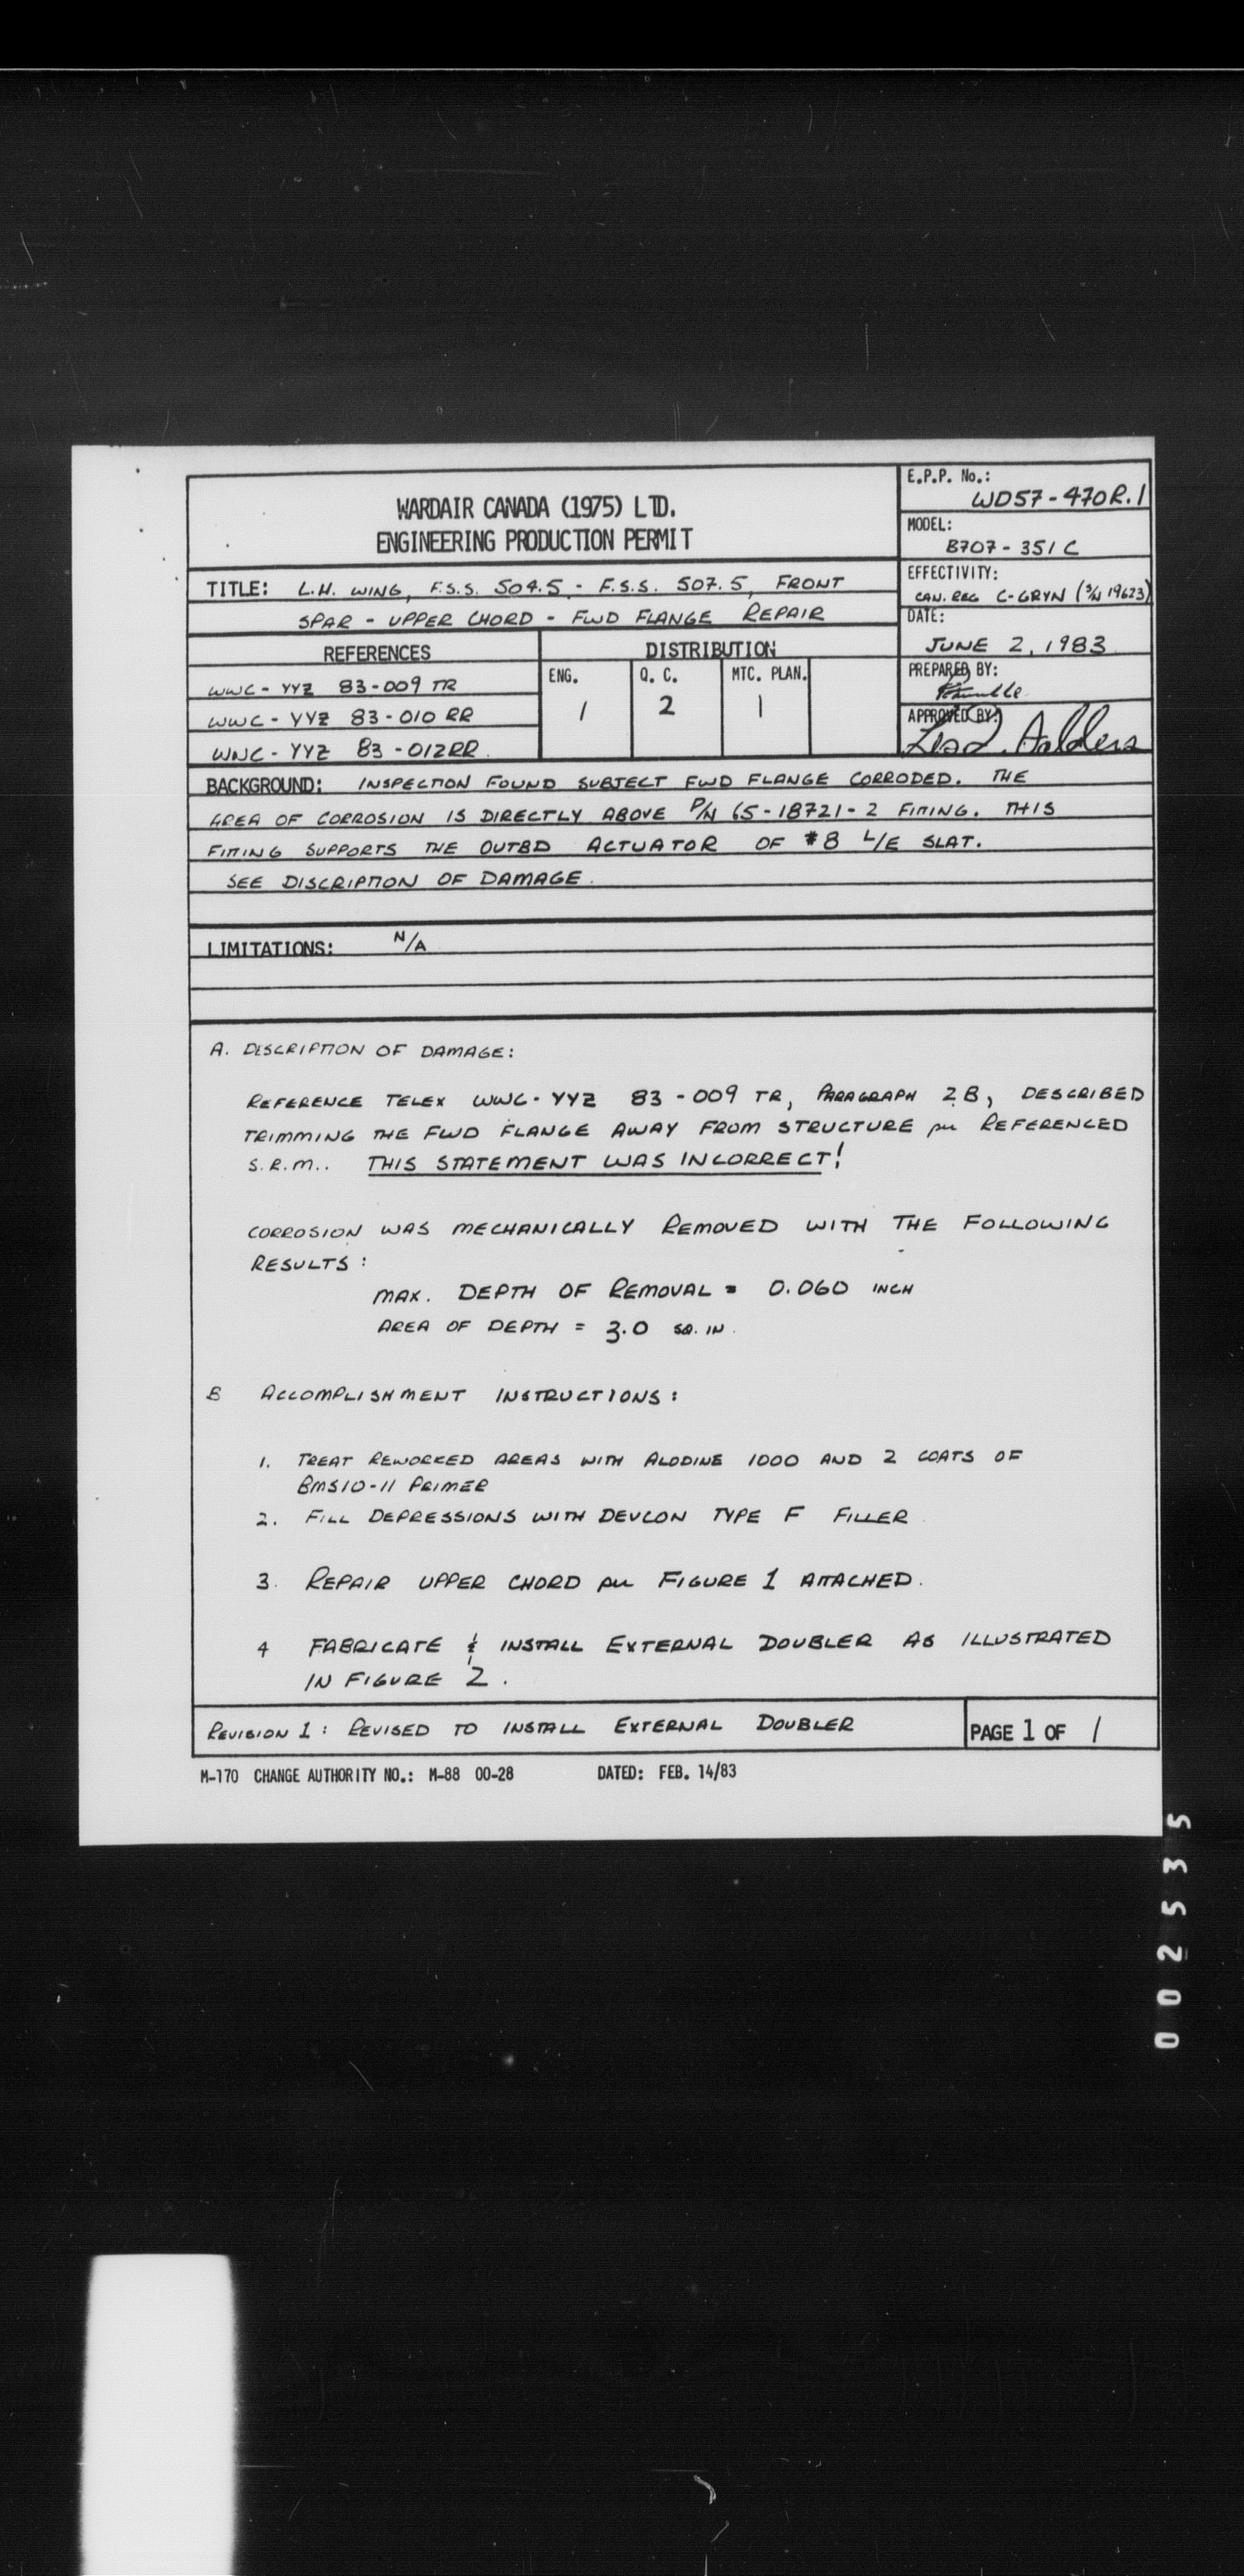 WARDAIR CANADA (1975) LTD.
ENGINEERING PRODUCTION PERMIT
E.P.P. No.:
WD57-470R.1
MODEL:
B707-351C
EFFECTIVITY:
CAN. REG C-GRYN (S/N 19623)
DATE:
JUNE 2, 1983
PREPARED BY:
APPROVED BY:
TITLE: L.H. WING, F.S.S. 504.5 - F.S.S. 507.5, FRONT
SPAR - UPPER CHORD - FWD FLANGE REPAIR
REFERENCES
WWC-YYZ 83-009 TR
WWC-YYZ 83-010 RR
WWC-YYZ 83-012RR.
DISTRIBUTION
ENG. Q. C. MTC. PLAN.
1 2 1
BACKGROUND: INSPECTION FOUND SUBJECT FWD FLANGE CORRODED. THE
AREA OF CORROSION IS DIRECTLY ABOVE P/N 65-18721-2 FITTING. THIS
FITTING SUPPORTS THE OUTBD ACTUATOR OF #8 L/E SLAT.
SEE DISCRIPTION OF DAMAGE.
LIMITATIONS: N/A
A. DISCRIPTION OF DAMAGE:
REFERENCE TELEX WWC-YYZ 83-009 TR, PARAGRAPH 2B, DESCRIBED
TRIMMING THE FWD FLANGE AWAY FROM STRUCTURE per REFERENCED
S.R.M.. THIS STATEMENT WAS INCORRECT!
CORROSION WAS MECHANICALLY REMOVED WITH THE FOLLOWING
RESULTS:
MAX. DEPTH OF REMOVAL = 0.060 INCH
AREA OF DEPTH = 3.0 SQ. IN.
B ACCOMPLISHMENT INSTRUCTIONS:
1. TREAT REWORKED AREAS WITH ALODINE 1000 AND 2 COATS OF
BMS10-11 PRIMER
2. FILL DEPRESSIONS WITH DEVCON TYPE F FILLER
3. REPAIR UPPER CHORD per FIGURE 1 ATTACHED.
4 FABRICATE & INSTALL EXTERNAL DOUBLER AS ILLUSTRATED
IN FIGURE 2.
REVISION 1: REVISED TO INSTALL EXTERNAL DOUBLER
PAGE 1 OF 1
M-170 CHANGE AUTHORITY NO.: M-88 00-28 DATED: FEB. 14/83
002535